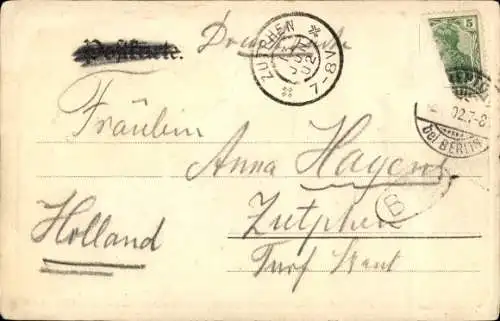 Postkarte.
Drucksache
5
ZUTPHEN
JUN
02
7-8V
02.7-8
bei BERLIN
Fräulein
Anna
B
Zutphen
Holland
Turf